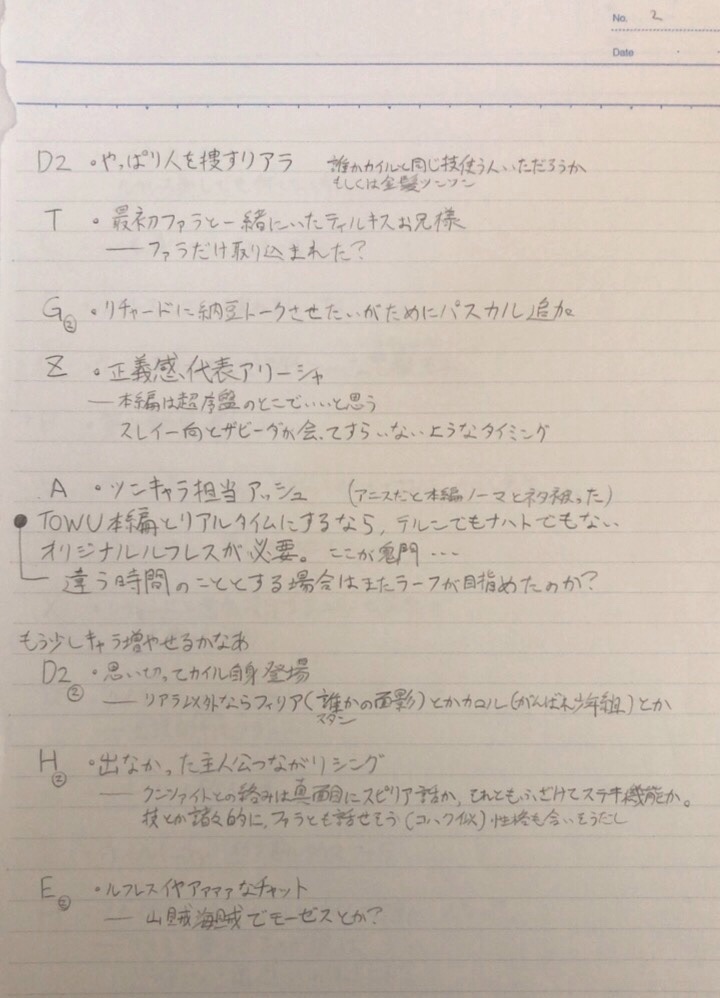 No. 2
Date ・ ・
D2 ・やっぱり人を捜すリアラ 誰かカイルと同じ技使う人いただろうか
もしくは金髪ツンツン
T ・最初ファラと一緒にいたティルキスお兄様
── ファラだけ取り込まれた?
G② ・リチャードに納豆トークさせたいがためにパスカル追加
Z ・正義感代表アリーシャ
── 本編は超序盤のとこでいいと思う
スレイ一向とザビーダが会ってすらいないようなタイミング
A ・ツンキャラ担当アッシュ (アニスだと本編ノーマとネタ被った)
●TOWU本編とリアルタイムにするなら,テルンでもナハトでもない
オリジナルルフレスが必要。ここが鬼門…
違う時間のこととする場合はまたラーフが目指めたのか?
もう少しキャラ増やせるかなあ
D2② ・思い切ってカイル自身登場
── リアラ以外ならフィリア(誰かの面影)とかカロル(がんばれ少年組)とか
スタン
H② ・出なかった主人公つながりシング
── クンツァイトとの絡みは真面目にスピリア話か,それともふざけてステキ機能か。
技とか諸々的に,ファラとも話せそう(コハク似)性格も合いそうだし
E② ・ルフレスイヤアァァァなチャット
── 山賊海賊でモーゼスとか?